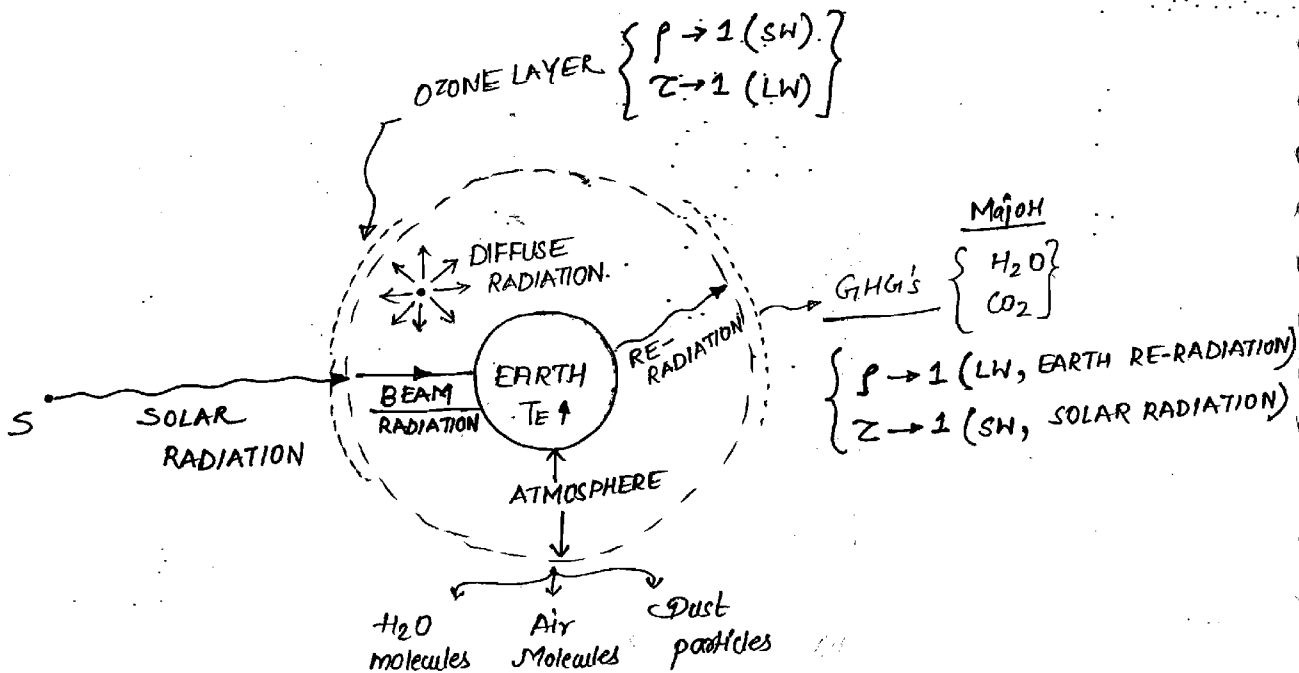 OZONE LAYER { ρ → 1 (SW).
τ → 1 (LW) }
DIFFUSE
RADIATION.
Major
GHG's { H2O
CO2 }
RE-RADIATION
{ ρ → 1 (LW, EARTH RE-RADIATION)
τ → 1 (SW, SOLAR RADIATION) }
S
SOLAR
RADIATION
BEAM
RADIATION
EARTH
TE ↑
ATMOSPHERE
H2O
molecules
Air
Molecules
Dust
particles